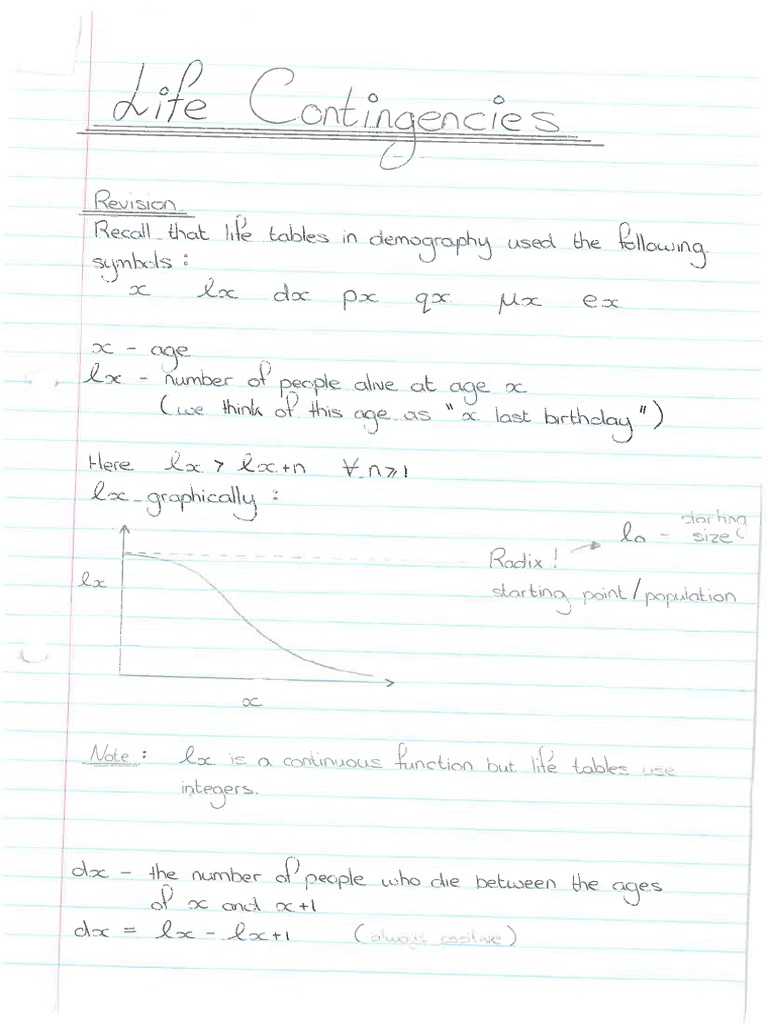 Life Contingencies
Revision
Recall that life tables in demography used the following
symbols:
x lx dx px qx μx ex
x - age
lx - number of people alive at age x
(we think of this age as "x last birthday")
Here lx > lx+n ∀ n≥1
lx graphically:
lx
x
Radix! → l0 - starting
size
starting point/population
Note: lx is a continuous function but life tables use
integers.
dx - the number of people who die between the ages
of x and x+1
dx = lx - lx+1 (always positive)